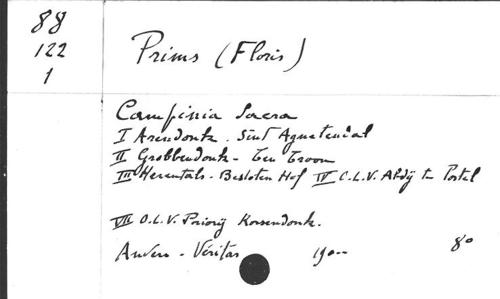 88
122
1
Prims (Floris)
Campinia Sacra
I Arendonk. Sint Agnetendal
II Grobbendonk - Ten Troon
III Herentals - Besloten Hof IV O.L.V. Abdij te Postel
VII O.L.V. Priorij Korsendonk.
Anvers - Véritas 19-- 8°